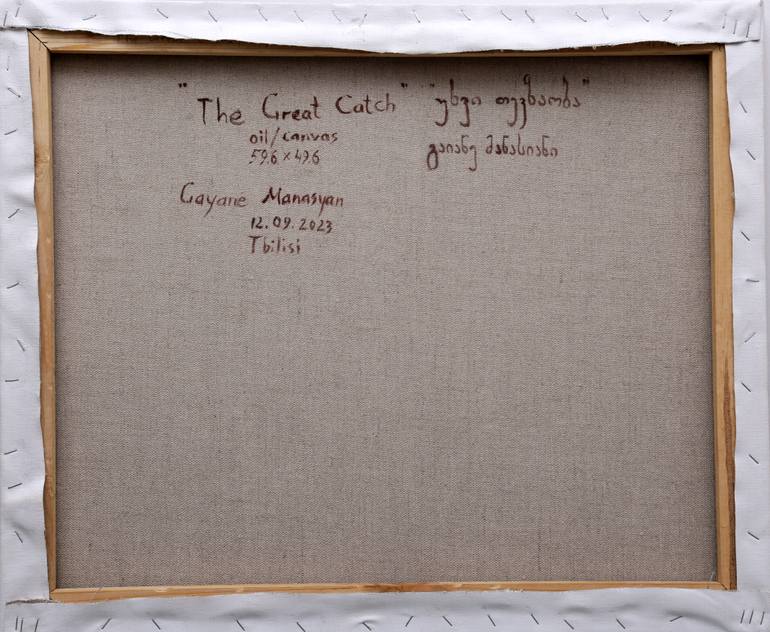 "The Great Catch"
oil/canvas
59.6 x 49.6
Gayane Manasyan
12.09.2023
Tbilisi
"უხვი თევზაობა"
გაიანე მანასიანი